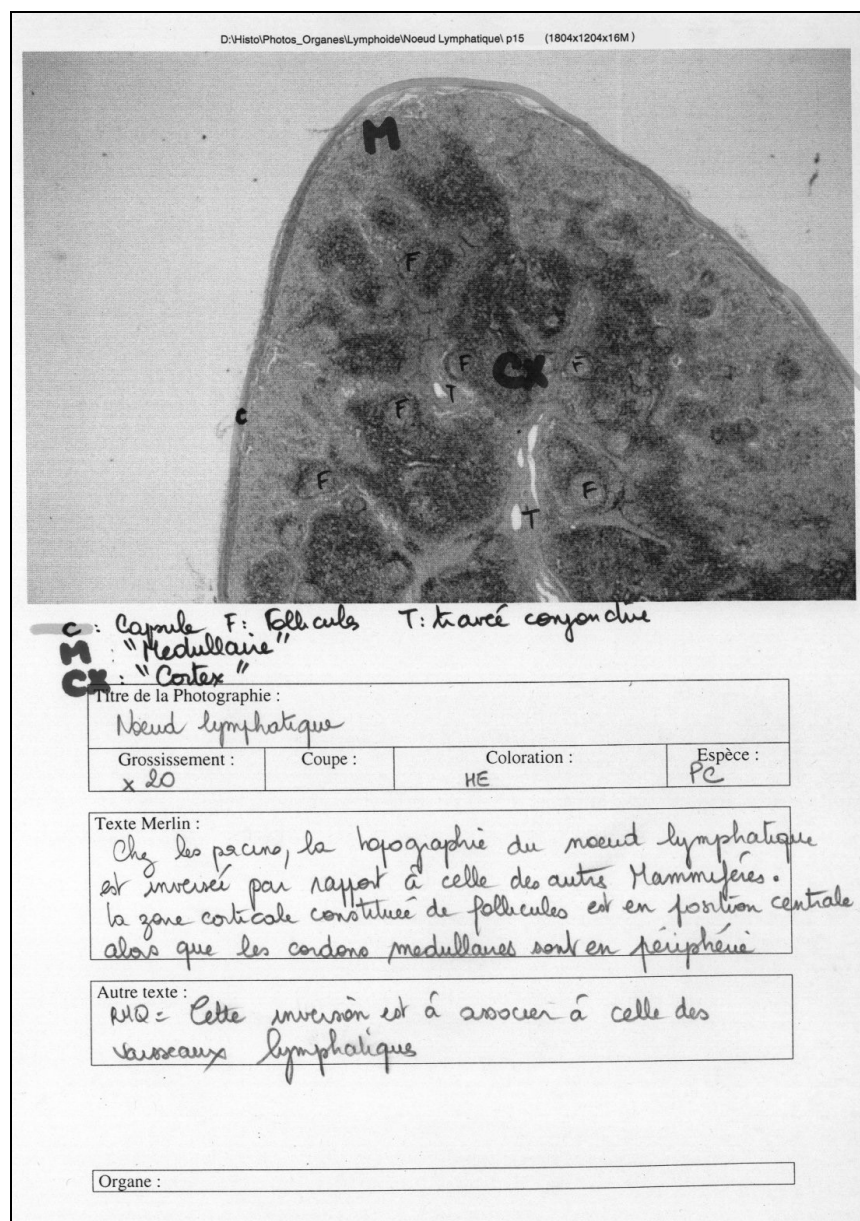 D:\Histo\Photos_Organes\Lymphoide\Noeud Lymphatique\ p15 (1804x1204x16M )
M
F
F
CX
F
T
F
C
F
F
T
C : Capsule F: Follicules T: travée conjonctive
M : "Medullaire"
CX : "Cortex"
Titre de la Photographie :
Nœud lymphatique
Grossissement : Coupe : Coloration : Espèce :
x 20 HE PC
Texte Merlin :
Chez les porcins, la topographie du nœud lymphatique
est inversée par rapport à celle des autres Mammifères.
la zone corticale constituée de follicules est en position centrale
alors que les cordons medullaires sont en périphérie
Autre texte :
RMQ = Cette inversion est à associer à celle des
vaisseaux lymphatiques
Organe :